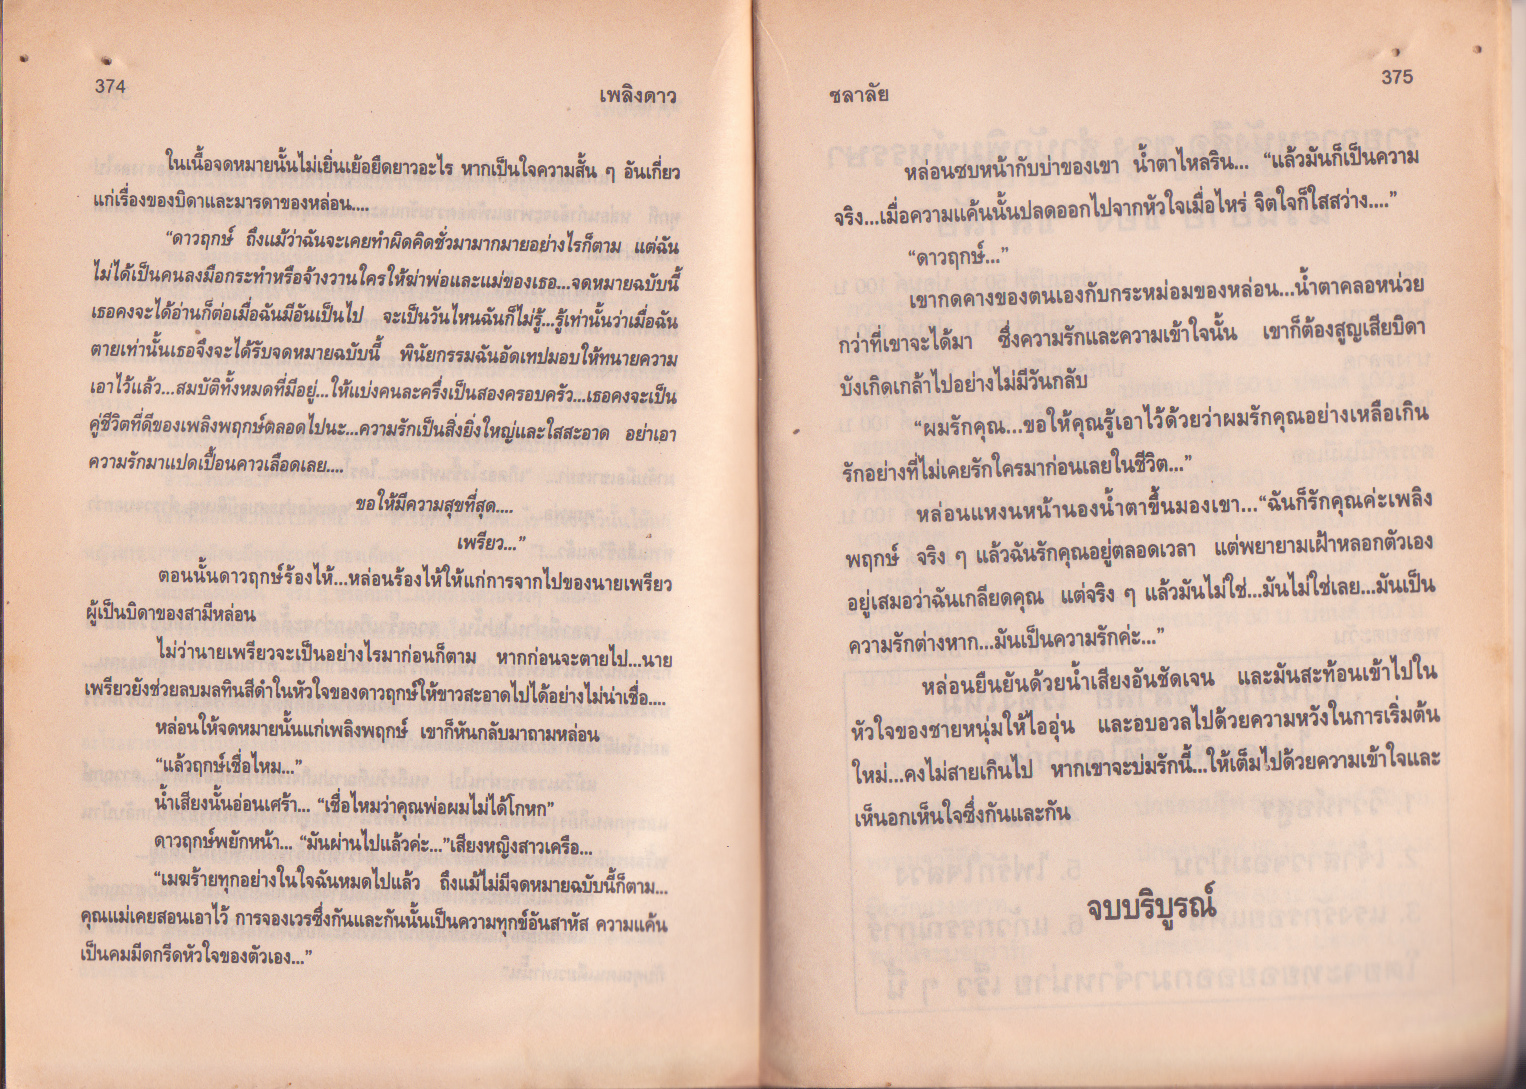 374
เพลิงดาว
ในเนื้อจดหมายนั้นไม่เยิ่นเย้อยืดยาวอะไร หากเป็นใจความสั้น ๆ อันเกี่ยว
แก่เรื่องของบิดาและมารดาของหล่อน....
“ดาวฤกษ์ ถึงแม้ว่าฉันจะเคยทำผิดคิดชั่วมามากมายอย่างไรก็ตาม แต่ฉัน
ไม่ได้เป็นคนลงมือกระทำหรือจ้างวานใครให้ฆ่าพ่อและแม่ของเธอ...จดหมายฉบับนี้
เธอคงจะได้อ่านก็ต่อเมื่อฉันมีอันเป็นไป จะเป็นวันไหนฉันก็ไม่รู้...รู้เท่านั้นว่าเมื่อฉัน
ตายเท่านั้นเธอจึงจะได้รับจดหมายฉบับนี้ พินัยกรรมฉันอัดเทปมอบให้ทนายความ
เอาไว้แล้ว...สมบัติทั้งหมดที่มีอยู่...ให้แบ่งคนละครึ่งเป็นสองครอบครัว...เธอคงจะเป็น
คู่ชีวิตที่ดีของเพลิงพฤกษ์ตลอดไปนะ...ความรักเป็นสิ่งยิ่งใหญ่และใสสะอาด อย่าเอา
ความรักมาแปดเปื้อนคาวเลือดเลย....
ขอให้มีความสุขที่สุด....
เพรียว...”
ตอนนั้นดาวฤกษ์ร้องไห้...หล่อนร้องไห้ให้แก่การจากไปของนายเพรียว
ผู้เป็นบิดาของสามีหล่อน
ไม่ว่านายเพรียวจะเป็นอย่างไรมาก่อนก็ตาม หากก่อนจะตายไป...นาย
เพรียวยังช่วยลบมลทินสีดำในหัวใจของดาวฤกษ์ให้ขาวสะอาดไปได้อย่างไม่น่าเชื่อ....
หล่อนให้จดหมายนั้นแก่เพลิงพฤกษ์ เขาก็หันกลับมาถามหล่อน
“แล้วฤกษ์เชื่อไหม...”
น้ำเสียงนั้นอ่อนเศร้า... “เชื่อไหมว่าคุณพ่อผมไม่ได้โกหก”
ดาวฤกษ์พยักหน้า... “มันผ่านไปแล้วค่ะ...”เสียงหญิงสาวเครือ...
“เมฆร้ายทุกอย่างในใจฉันหมดไปแล้ว ถึงแม้ไม่มีจดหมายฉบับนี้ก็ตาม...
คุณแม่เคยสอนเอาไว้ การจองเวรซึ่งกันและกันนั้นเป็นความทุกข์อันสาหัส ความแค้น
เป็นคมมีดกรีดหัวใจของตัวเอง...”
ชลาลัย
375
หล่อนซบหน้ากับบ่าของเขา น้ำตาไหลริน... “แล้วมันก็เป็นความ
จริง...เมื่อความแค้นนั้นปลดออกไปจากหัวใจเมื่อไหร่ จิตใจก็ใสสว่าง....”
“ดาวฤกษ์...”
เขากดคางของตนเองกับกระหม่อมของหล่อน...น้ำตาคลอหน่วย
กว่าที่เขาจะได้มา ซึ่งความรักและความเข้าใจนั้น เขาก็ต้องสูญเสียบิดา
บังเกิดเกล้าไปอย่างไม่มีวันกลับ
“ผมรักคุณ...ขอให้คุณรู้เอาไว้ด้วยว่าผมรักคุณอย่างเหลือเกิน
รักอย่างที่ไม่เคยรักใครมาก่อนเลยในชีวิต...”
หล่อนแหงนหน้านองน้ำตาขึ้นมองเขา...“ฉันก็รักคุณค่ะเพลิง
พฤกษ์ จริง ๆ แล้วฉันรักคุณอยู่ตลอดเวลา แต่พยายามเฝ้าหลอกตัวเอง
อยู่เสมอว่าฉันเกลียดคุณ แต่จริง ๆ แล้วมันไม่ใช่...มันไม่ใช่เลย...มันเป็น
ความรักต่างหาก...มันเป็นความรักค่ะ...”
หล่อนยืนยันด้วยน้ำเสียงอันชัดเจน และมันสะท้อนเข้าไปใน
หัวใจของชายหนุ่มให้ไออุ่น และอบอวลไปด้วยความหวังในการเริ่มต้น
ใหม่...คงไม่สายเกินไป หากเขาจะบ่มรักนี้...ให้เต็มไปด้วยความเข้าใจและ
เห็นอกเห็นใจซึ่งกันและกัน
จบบริบูรณ์